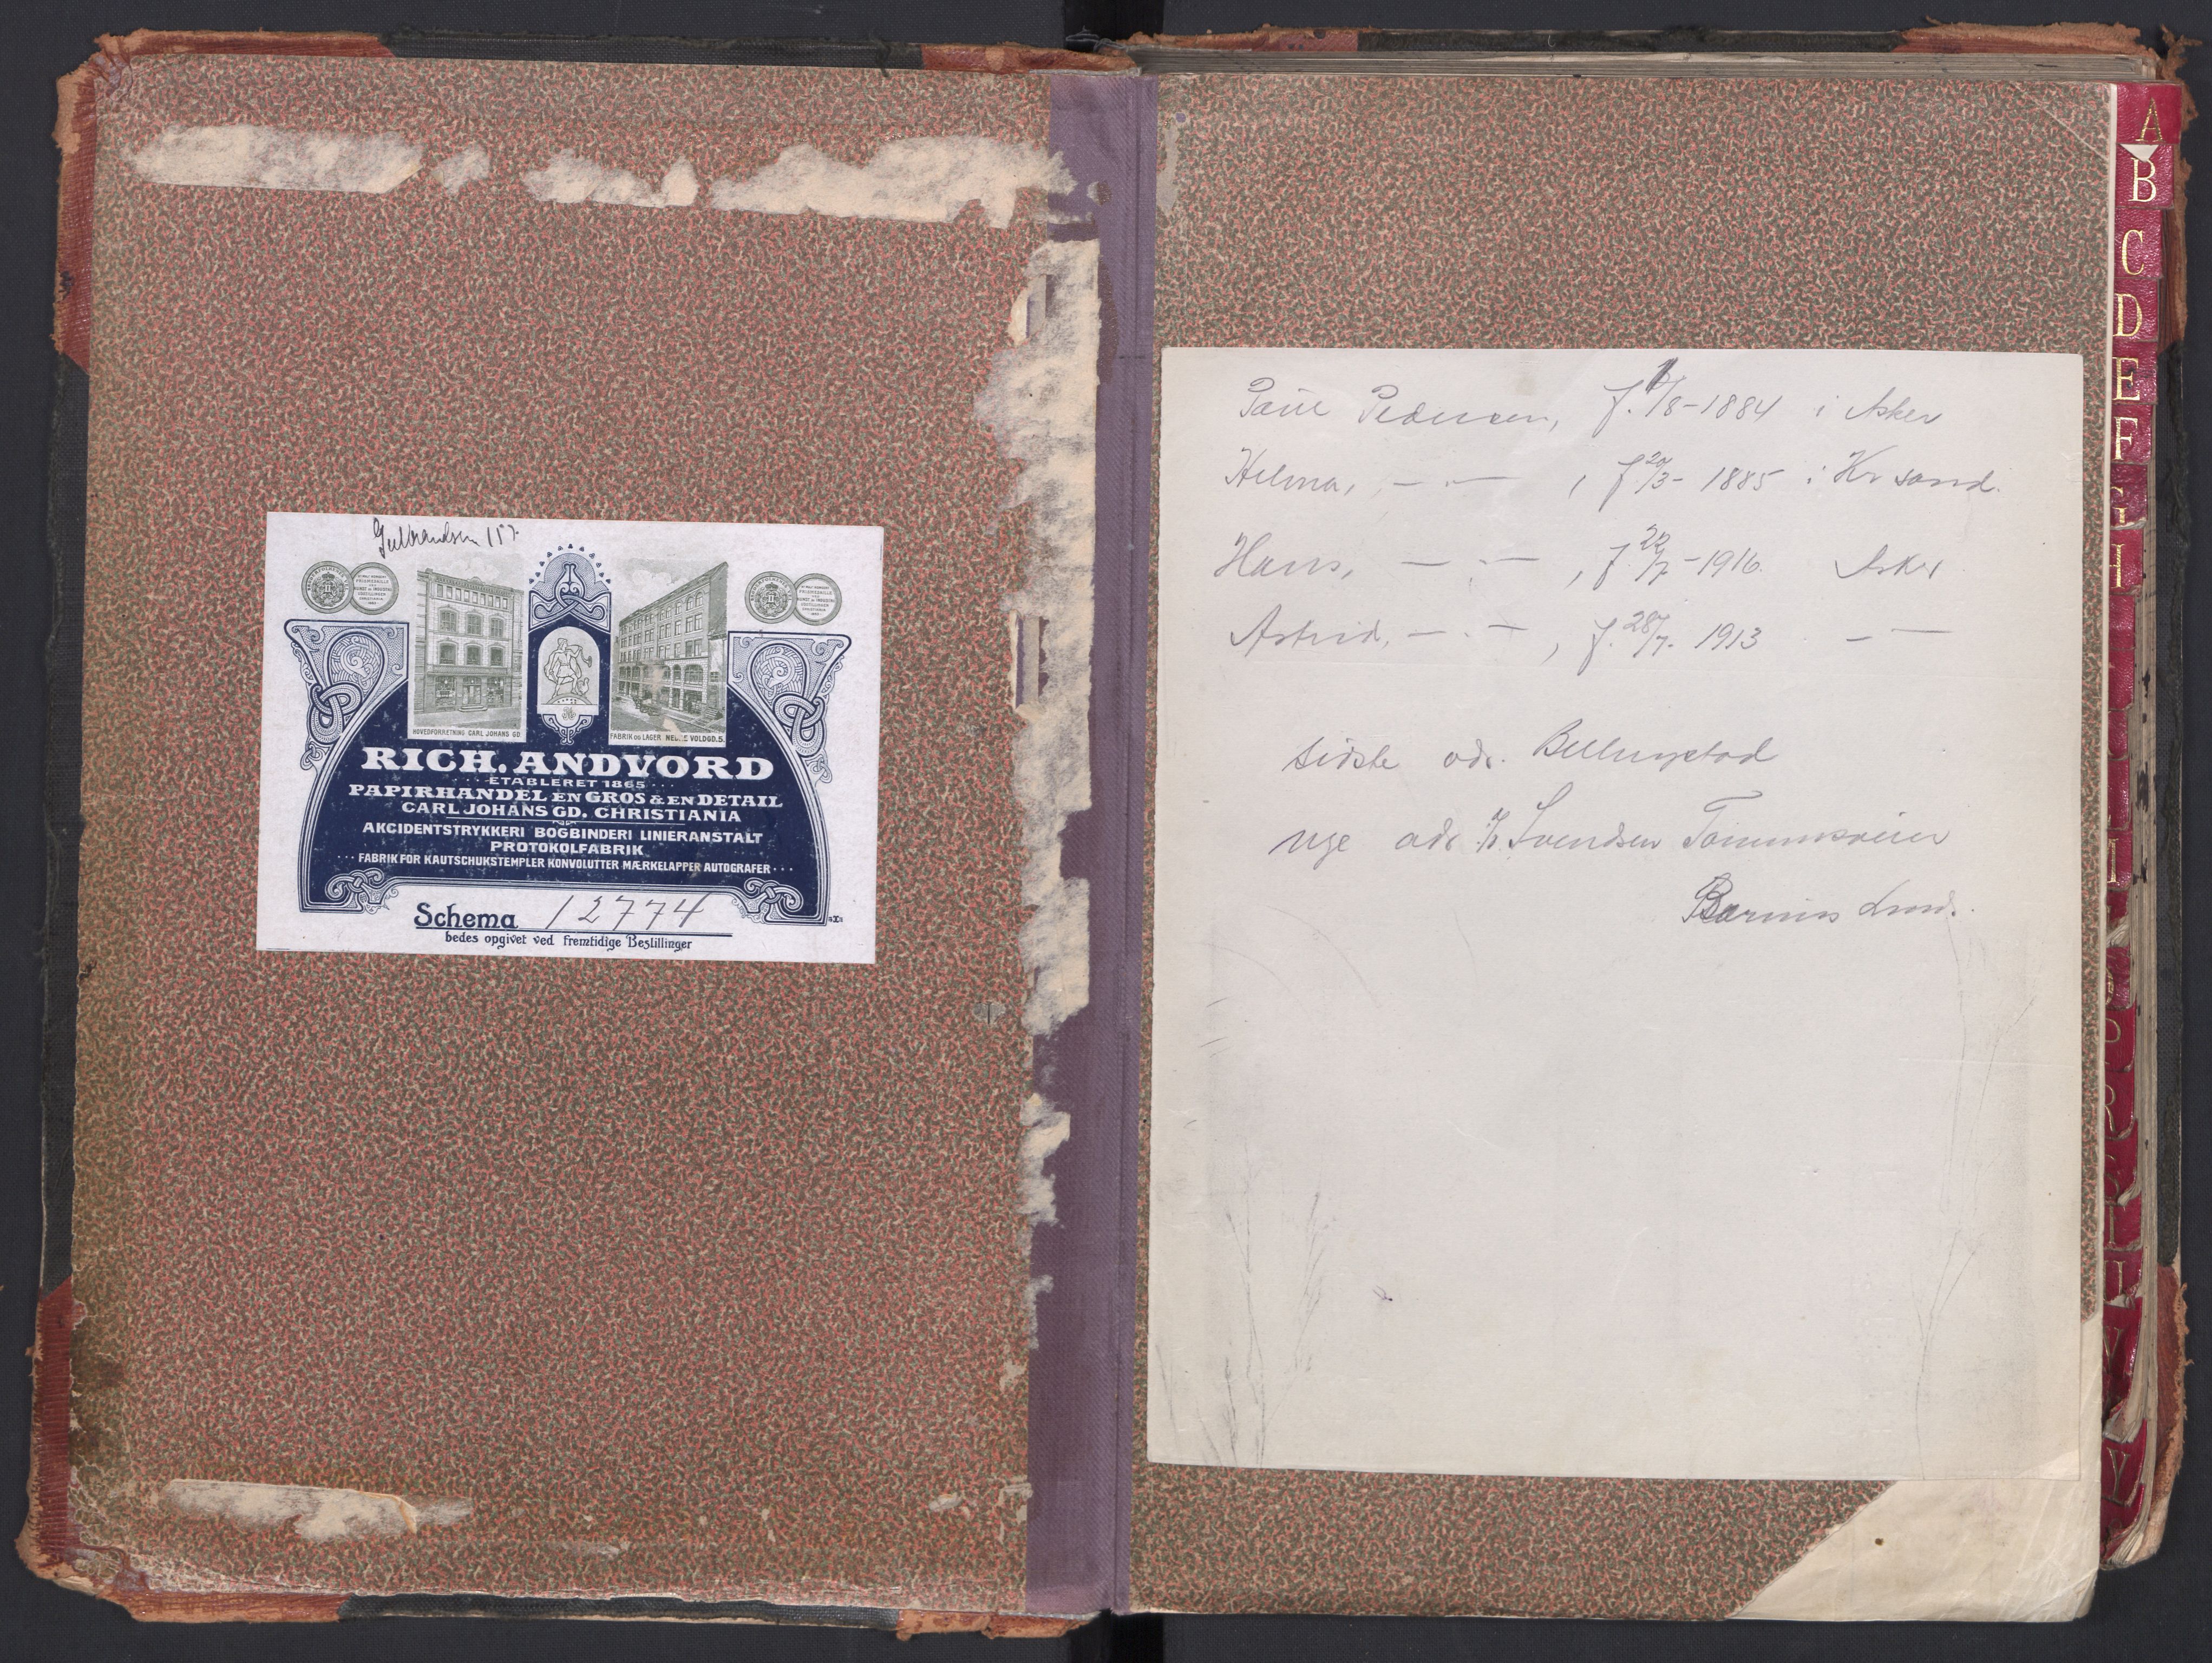 Gulbrandsen 157.
HOVEDFORRETNING CARL JOHANS GD.
FABRIK OG LAGER NEDRE VOLDGD. 5.
RICH. ANDVORD
ETABLERET 1865
PAPIRHANDEL EN GROS & EN DETAIL
CARL JOHANS GD. CHRISTIANIA
AKCIDENTSTRYKKERI BOGBINDERI LINIERANSTALT
PROTOKOLFABRIK
FABRIK FOR KAUTSCHUKSTEMPLER KONVOLUTTER MÆRKELAPPER AUTOGRAFER
Schema 12774
bedes opgivet ved fremtidige Bestillinger
Paul Pedersen, f. /8-1884 i Asker
Helma, — " — , f 27/3- 1885 i Kr sand.
Hans, — " — , f. 22/7-1916. Asker
Astrid, — " — , f. 28/7- 1913 — " —
sidste adr. Billingstad
nye adr. Svendsen
Bærums
A
B
C
D
E
F